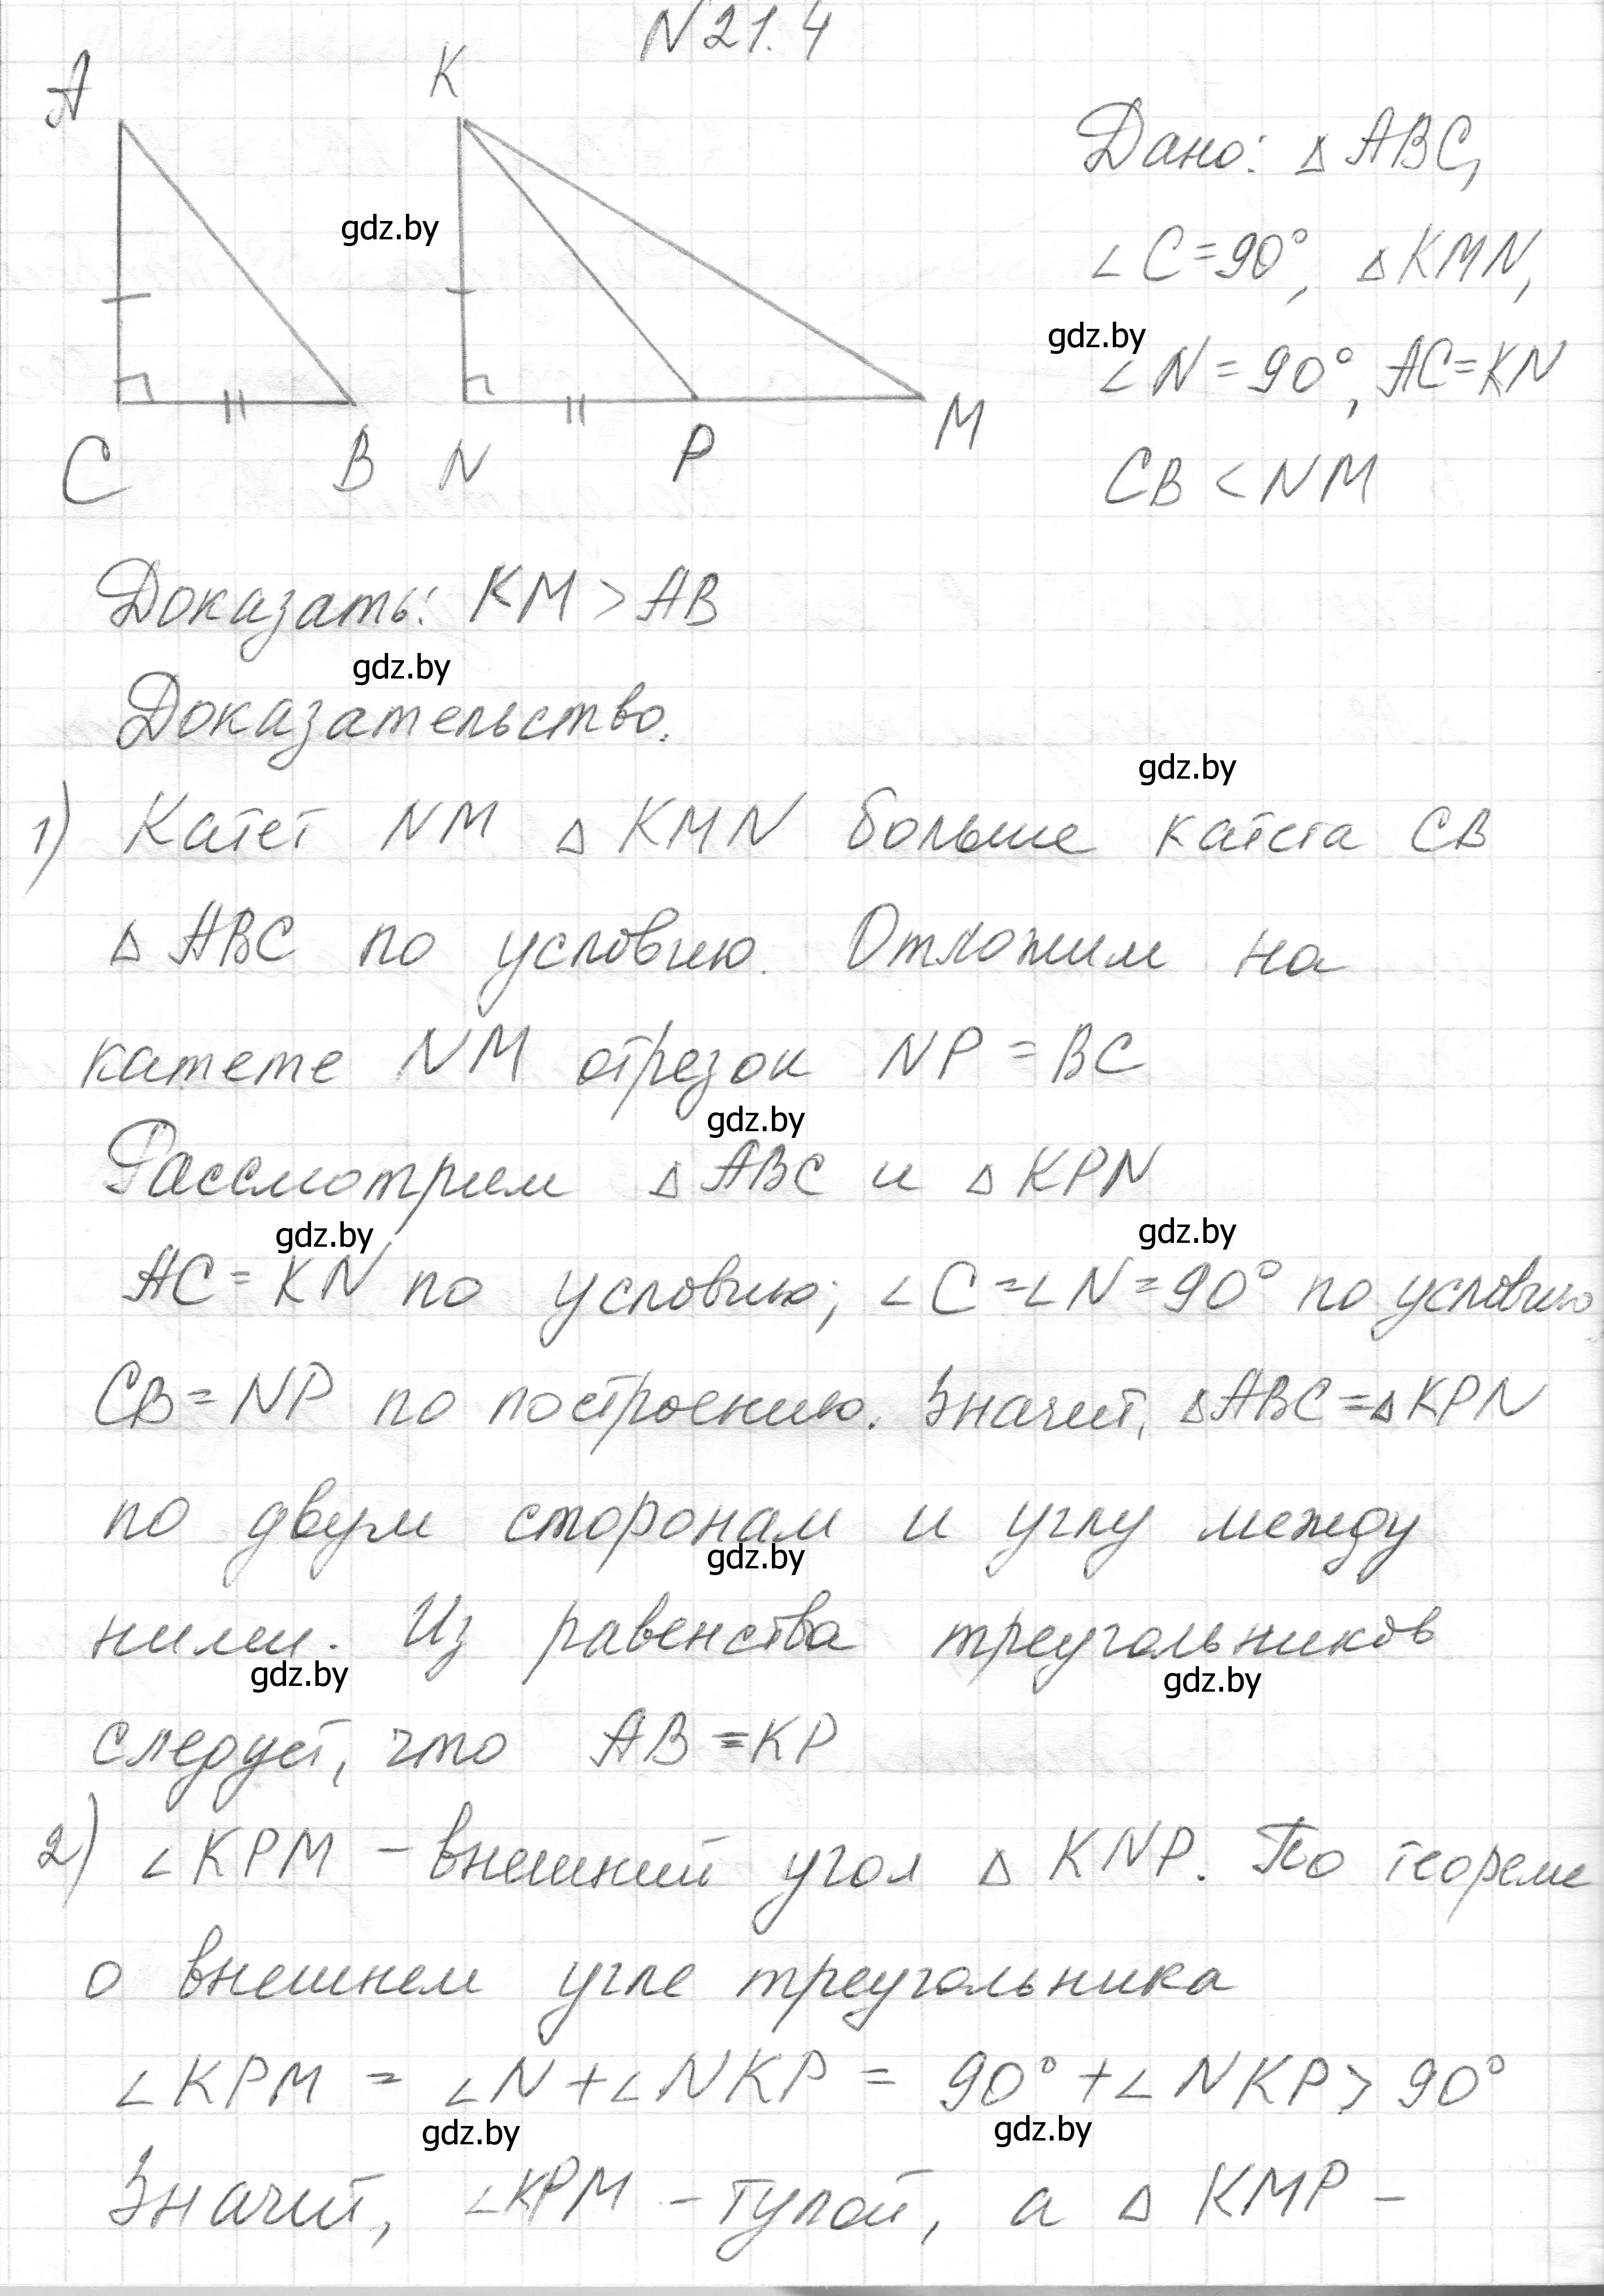 N 21.4
A
K
gdz.by
C
B
N
P
M
Дано: △ ABC,
∠C=90°, △ KMN,
gdz.by
∠N = 90°, AC=KN
CB < NM
Доказать: KM > AB
gdz.by
Доказательство.
gdz.by
1) Катет NM △ KMN больше катета CB
△ ABC по условию. Отложим на
катете NM отрезок NP = BC
gdz.by
Рассмотрим △ ABC и △ KPN
gdz.by
gdz.by
AC = KN по условию; ∠C=∠N=90° по условию,
CB = NP по построению. Значит, △ABC=△KPN
по двум сторонам и углу между
gdz.by
ними. Из равенства треугольников
gdz.by
gdz.by
следует, что AB = KP
2) ∠KPM – внешний угол △ KNP. По теореме
о внешнем угле треугольника
∠KPM = ∠N + ∠NKP = 90° + ∠NKP > 90°
gdz.by
gdz.by
Значит, ∠KPM – тупой, а △ KMP –